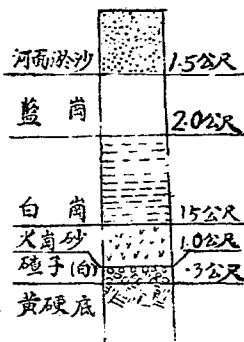 河面淤沙 1.5公尺
蓝岗 20公尺
白岗 15公尺
火岗砂 1.0公尺
碴子(白) .3公尺
黄硬底